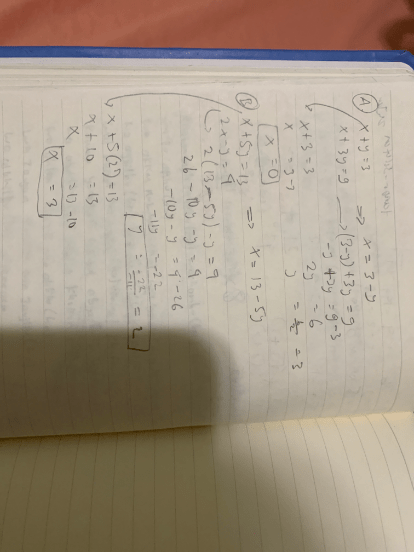 Ⓐ x+y=3 ⇒ x = 3-y
x+3y=9 → (3-y)+3y=9
-y+3y = 9-3
2y = 6
x+3 = 3 y = 6/2 = 3
x = 3-3
x = 0
Ⓑ x+5y=13 ⇒ x = 13-5y
2x-y=9
2(13-5y)-y=9
26-10y-y=9
-10y-y=9-26
-11y=-22
y = -22/-11 = 2
x+5(2)=13
x+10 =13
x =13-10
x = 3